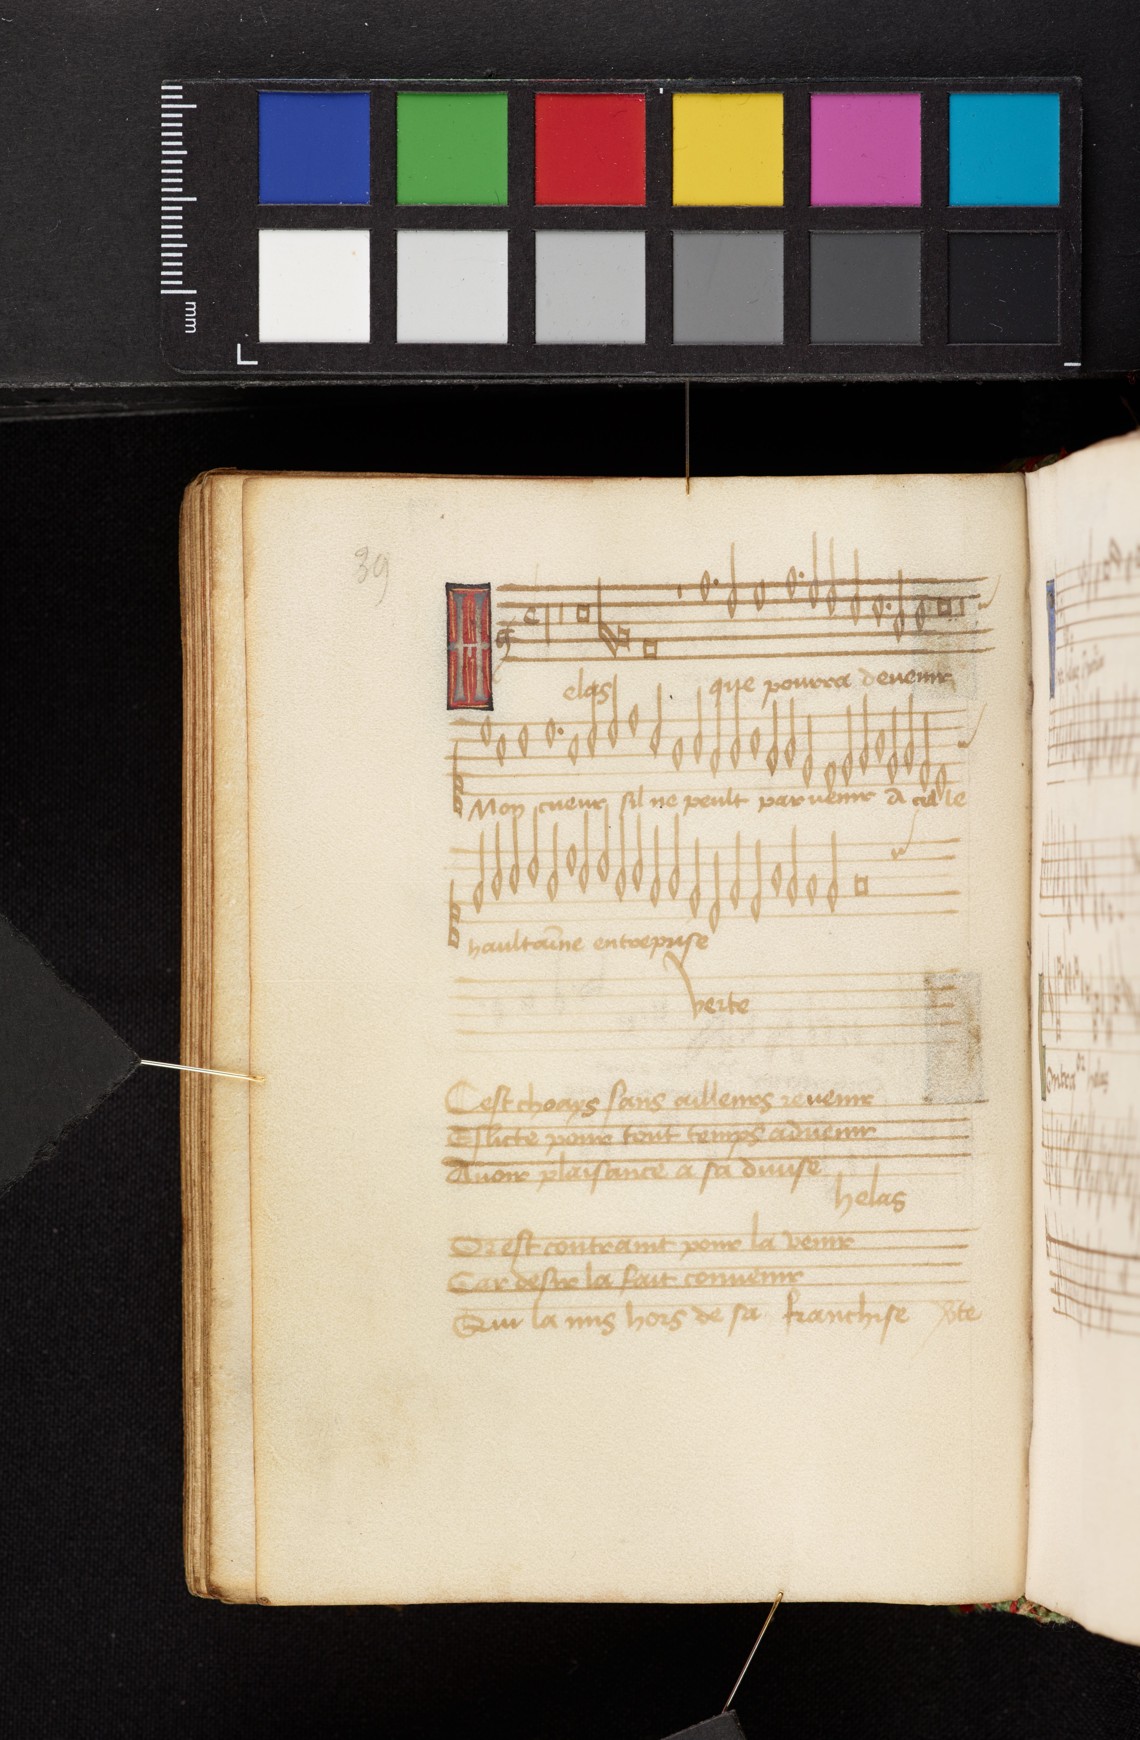 mm
39
Helas que pourra devenir
Mon cueur sil ne peult parvenir A celle
haultaine entreprise
verte
Cest choays sans ailleurs revenir
Eslicte pour tout temps advenir
Avoir plaisance a sa divise
helas
Or est contraint pour la venir
Car desir la fait convenir
Qui la mis hors de sa franchise vte
Contra
helas